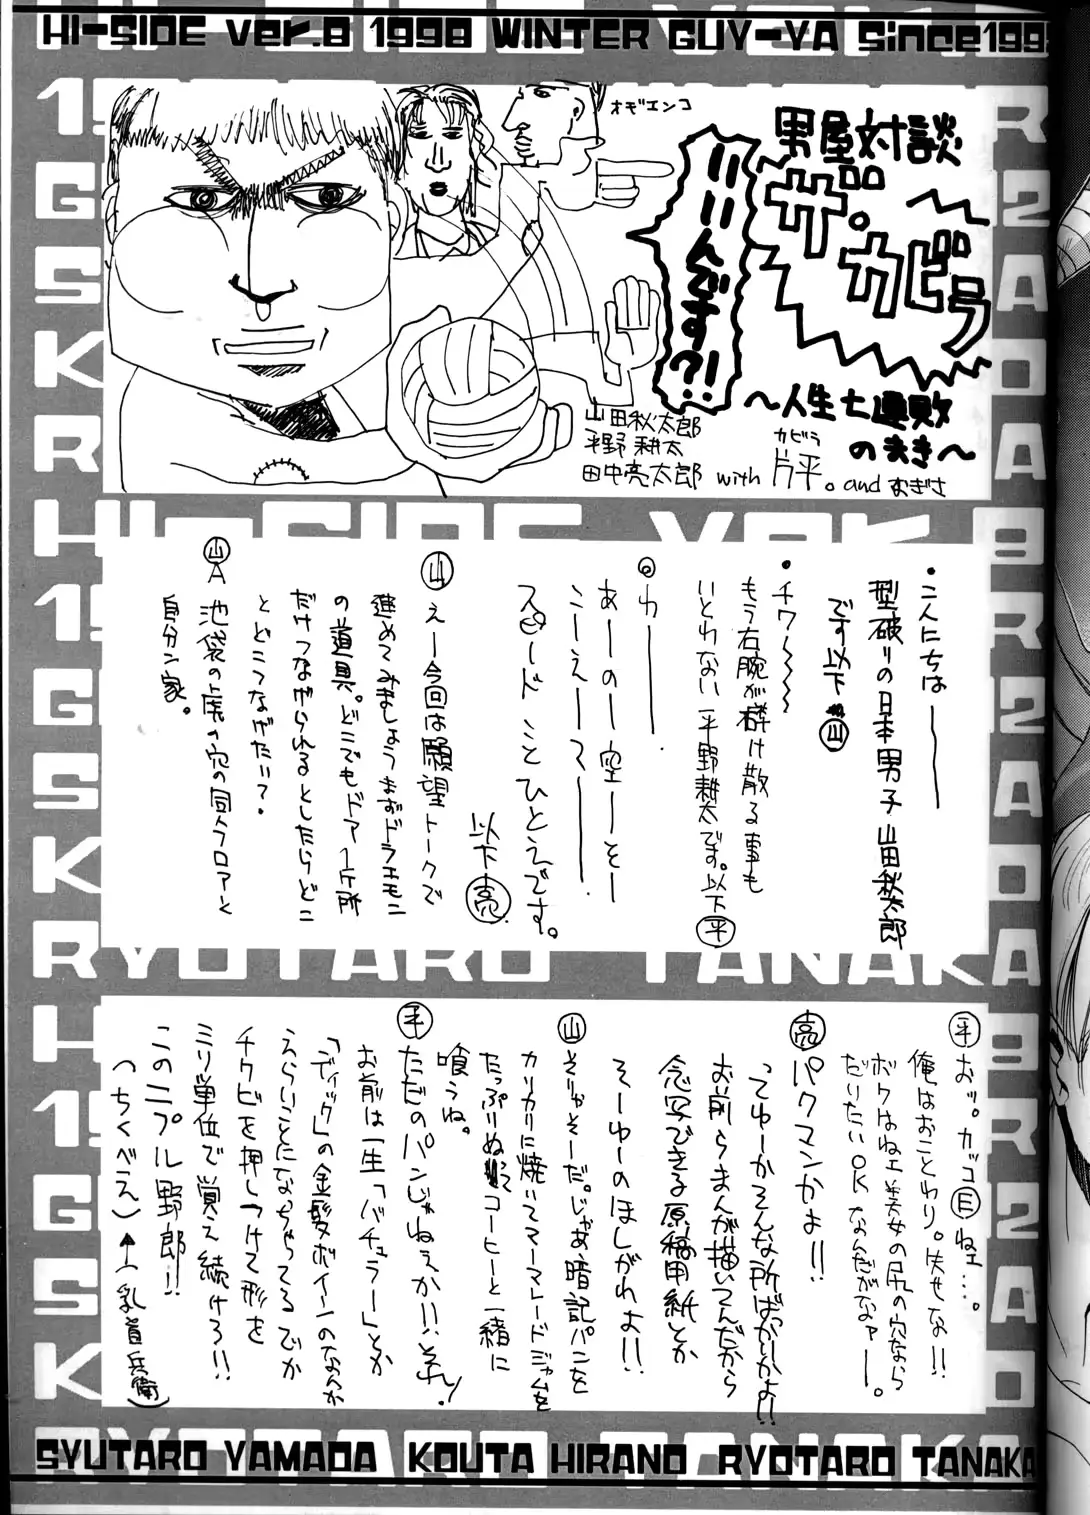 HI-SIDE ver.8 1998 WINTER GUY-YA Since199
男屋対談
ザ・カビラ
いいんですす?!
〜人生七連敗
の夫き〜
オギエンコ
山田秋太郎
平野耕太
田中亮太郎 with 片平。and むぎさ
カビラ
・こんにちはー
型破りの日本男子山田秋太郎
です以下山
・チワ〜〜〜
もう右腕が砕け散る事も
いとわない平野耕太です。以下平
◎わーーー
あーのー空ーをー
こーえーてーー
スピードことひとえです。
以下亮
山 えー今回は願望トークで
進めてみましょうまずドラエモン
の道具。どこでもドア1ケ所
だけつなげいられるとしたらどこ
とどこつなげたい?
山A 池袋の虎の穴の同人フロアーと
自分ン家。
平 おッ。カッコ目ねェ…。
俺はおことわり。失せな!!
ボクはねェ美女の尻の穴なら
だいたいOKなんだがなァー。
亮 パクマンかよ!!
ってゆーかそんな所ばっかーかよ!!
お前らまんが描いてんだから
念写できる原稿用紙とか
そーゆーのほしがれよ!!
山 そりゃそーだ。じゃあ、暗記パンを
カリカリに焼いてマーマレードジャムを
たっぷりぬってコーヒーと一緒に
喰うね。
平 ただのパンじゃねぇか!!それ!
お前は一生「バチュラー」とか
「ディック」の金髪ボインのなんか
えらいことになっちゃってるでか
チクビを押しつけて形を
ミリ単位で覚え続けろ!!
このニプル野郎!!
(ちくべえ)↑
(乳首兵衛)
SYUTARO YAMADA KOUTA HIRANO RYOTARO TANAKA